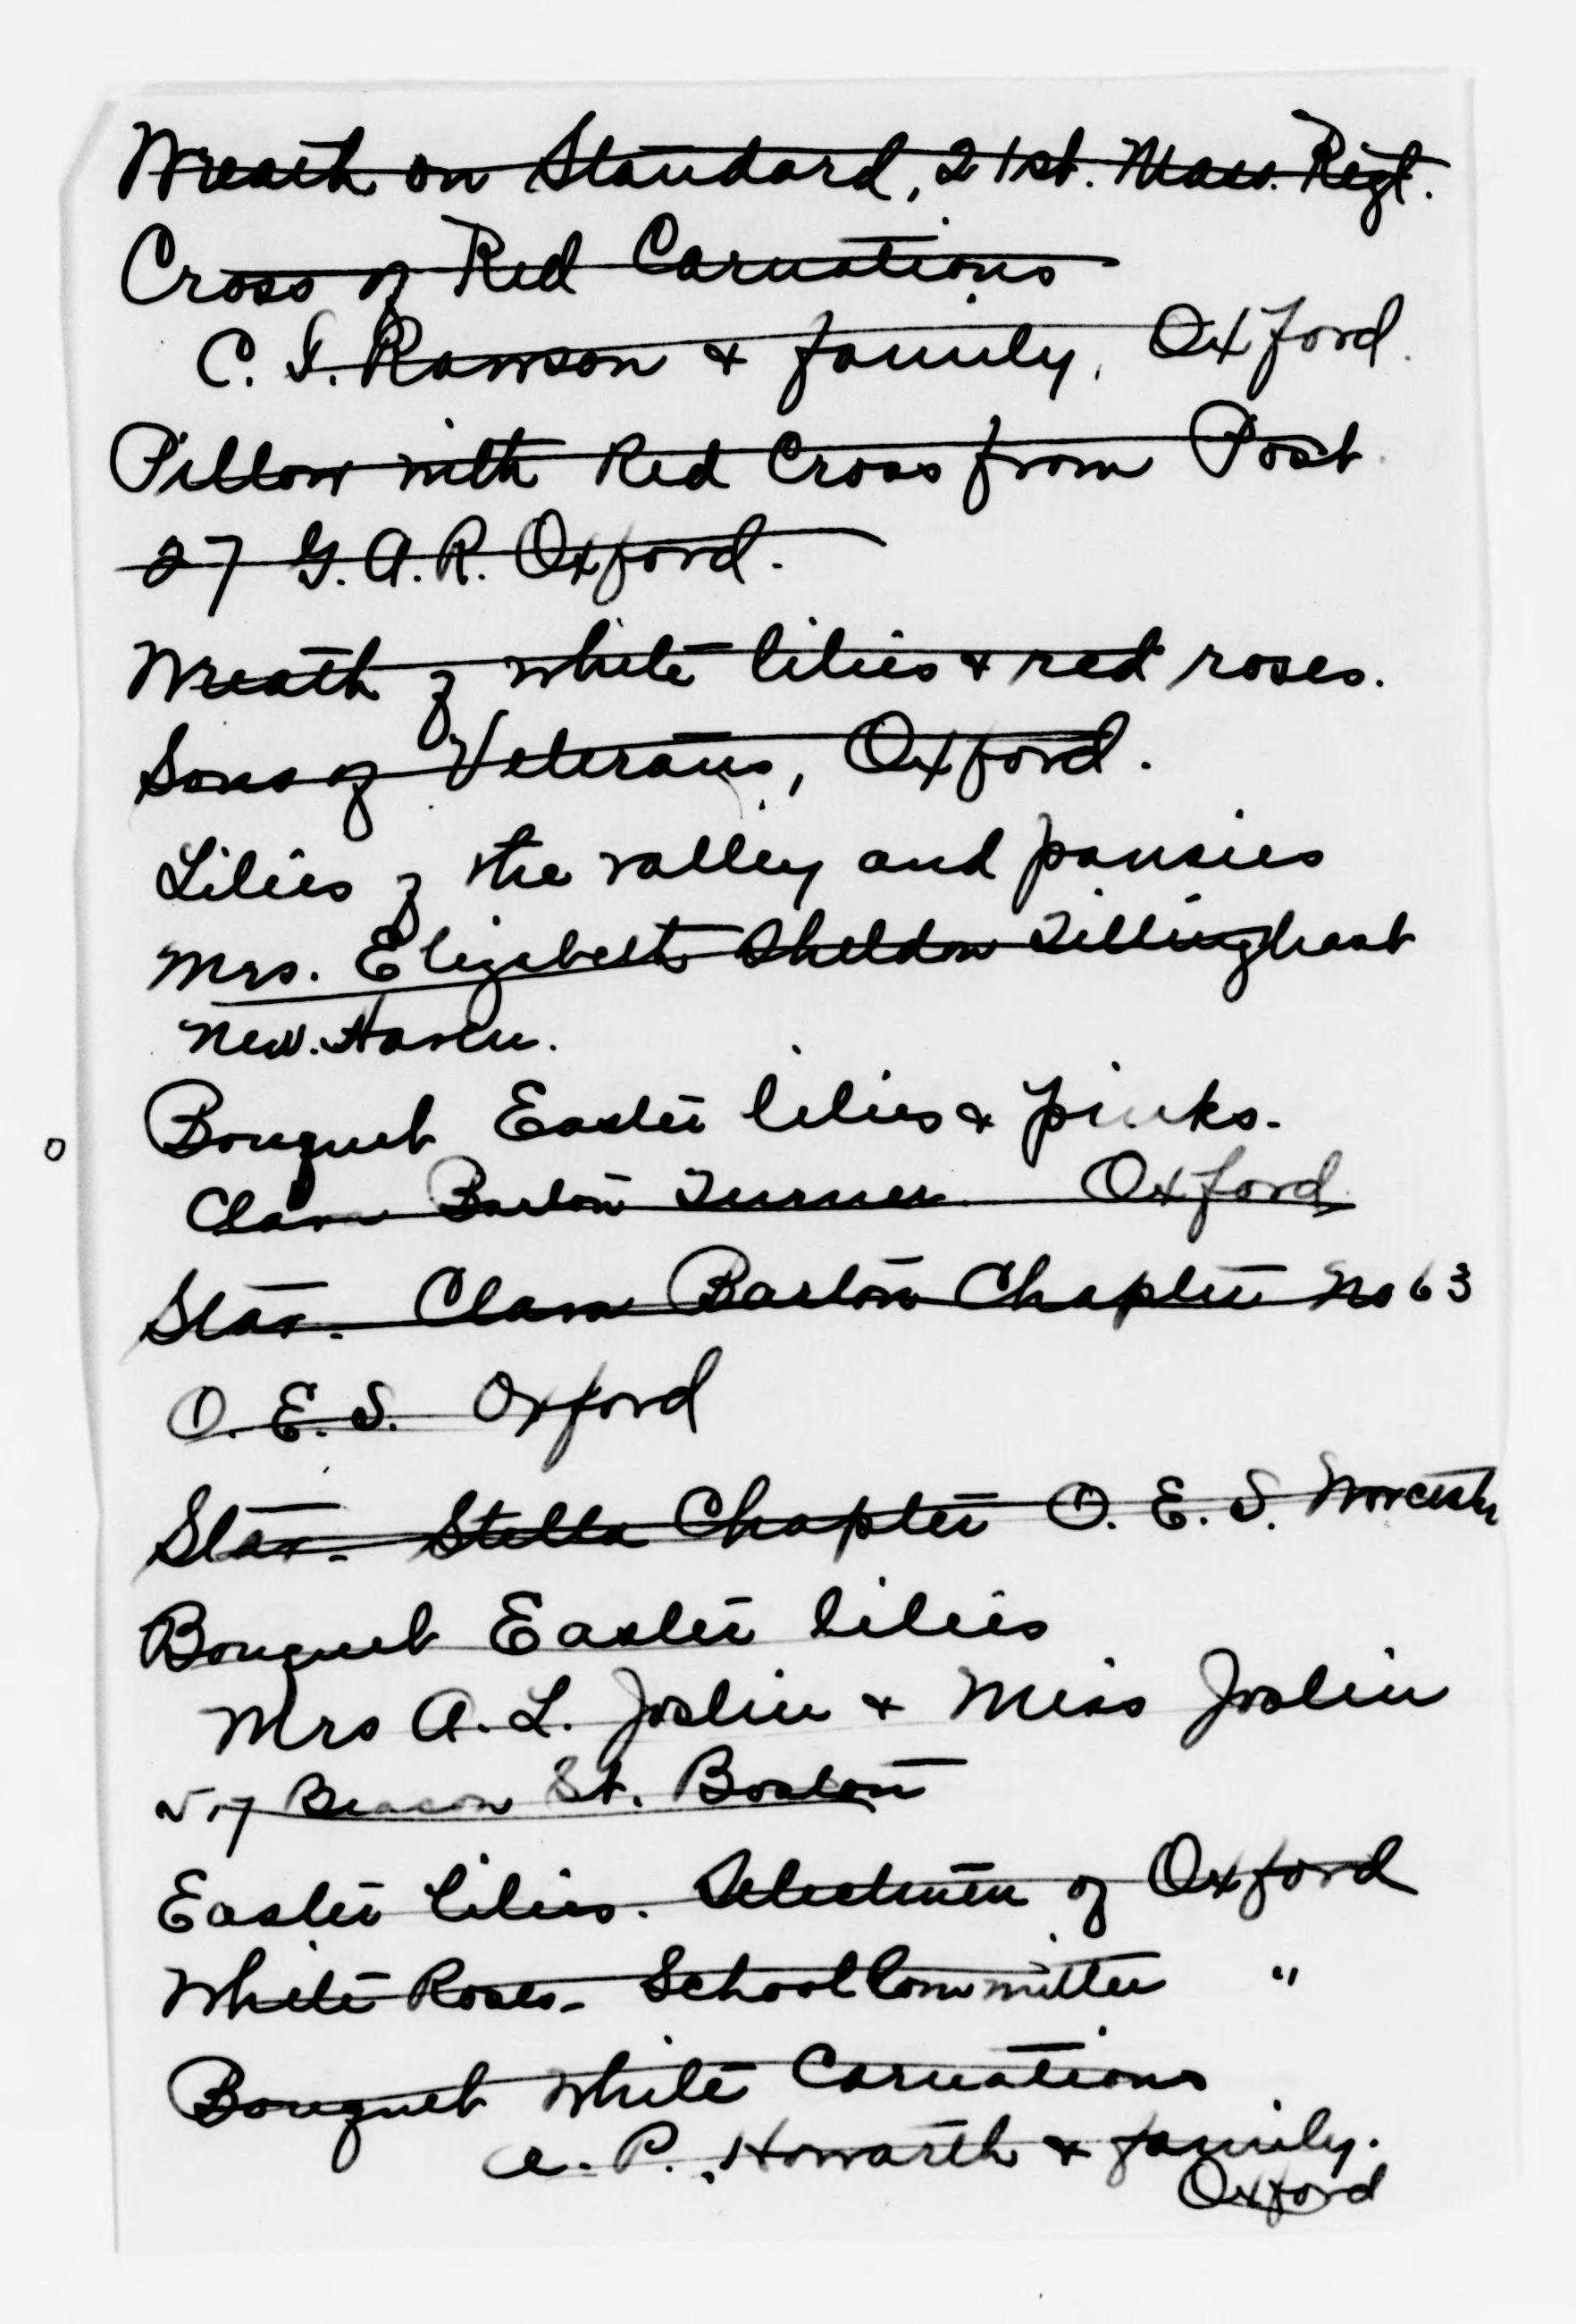 Wreath on Standard, 21st. Mass. Regt.
Cross of Red Carnations
C. F. Rawson & family, Oxford.
Pillow with Red Cross from Post
27 G.A.R. Oxford.
Wreath of white lilies & red roses.
Sons of Veterans, Oxford.
Lilies of the valley and pansies
Mrs. Elizabeth Sheldon Tillinghast
New Haven.
Bouquet Easter lilies & pinks.
Clara Barton Turner Oxford
Star. Clara Barton Chapter No 63
O. E. S. Oxford
Star. Stella Chapter O. E. S. Worcester
Bouquet Easter lilies
Mrs A. L. Joslin & Miss Joslin
517 Beacon St. Boston
Easter lilies. Selectmen of Oxford
White Roses - School Committee "
Bouquet White Carnations
A. P. Howarth & family.
Oxford